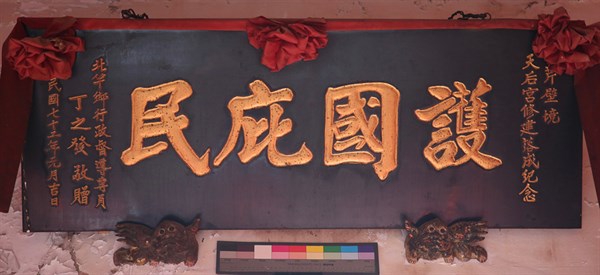 芹壁境
天后宮修建落成紀念
護國庇民
北竿鄉行政發導專員
丁之發敬贈
民國七十二年元月吉日